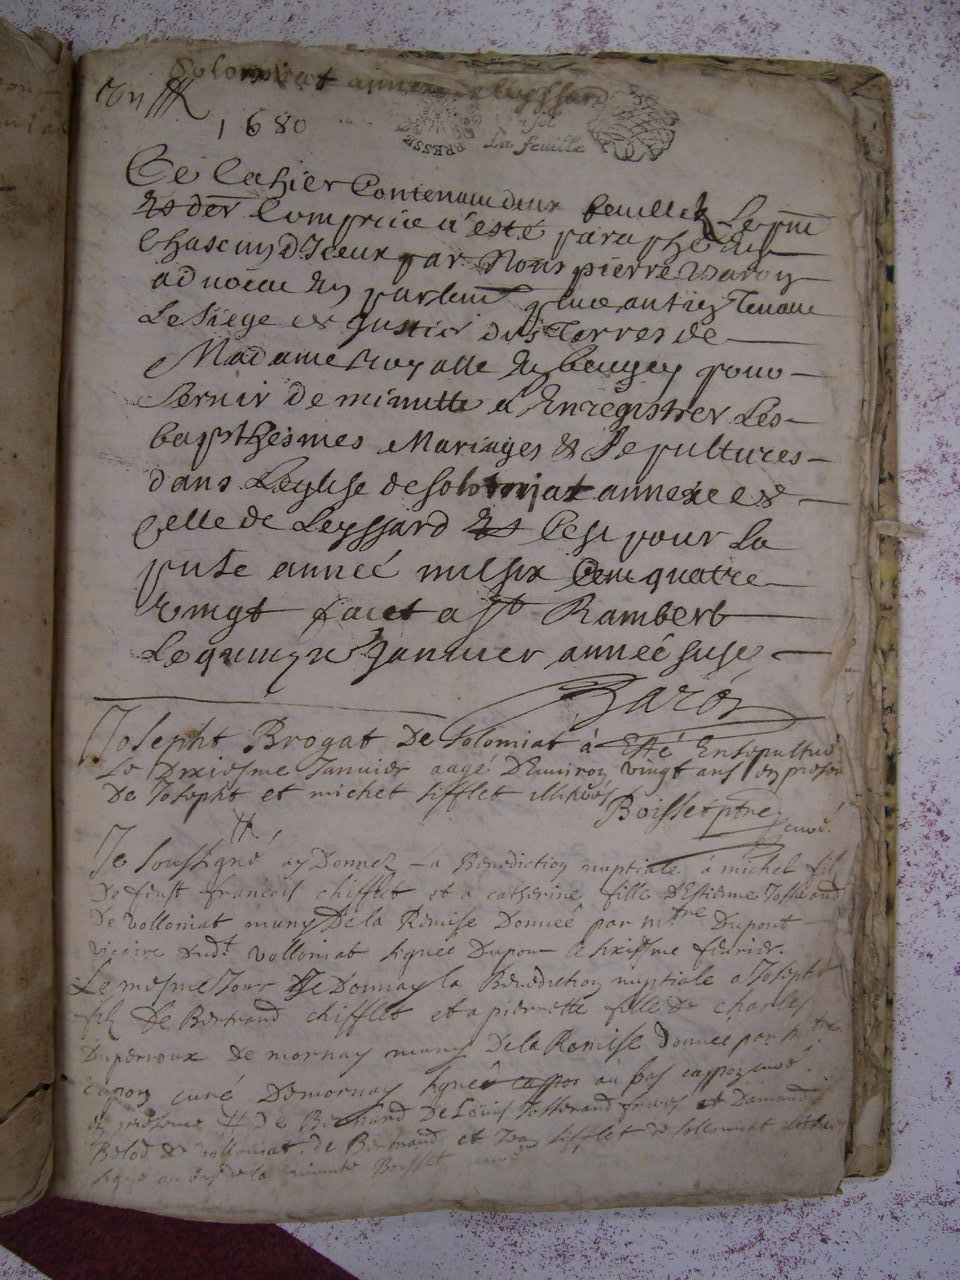 Solomiat annexe de Leyssard
1680
La feuille
Ce Cahier Contenant deux feuillez Le pnt
et der Comprice a esté paraphé en
Chascun d'Iceux par Nous pierre Baron
advocat en parlemt plus antien Tenant
Le Siege et Justice des Terres de
Madame Royalle en beugey pour
Servir de minutte a Enregistrer Les
bapthesmes Mariages & Sepultures
dans L'eglise de solomiat annexe et
Celle de Leyssard et C'est pour La
pnte année mil six Cent quatre
vingt faict a St Rambert
Le quinze Janvier année susd
Baron
Josepht Brogat De Solomiat à Esté Ensepulturé
Le Dixiesme Janvier aagé D'environ vingt ans en presen
De Josepht et michel sifflet illiteres
Boisset ptre
curé
Je soussigné ay Donnez la Benediction nuptiale à michel fils
De feust francois chifflet et a catherine fille D'Estienne Josserand
De volloniat muny De la Remise Donneé par mtre Dupont
vicaire dudt volloniat signeé Dupont Le sixiesme fevrier.
Le mesme Jour Je Donnay la Benediction nuptiale a Josepht
fils De Bertrand chifflet et a pierrette fille De charles
Duperroux De mornay muny De la Remise Donneé par Mtre
curé De mornay signeé au bas curé
en presence De Bertrand De Louis Josserand et
Belod De volloniat. de Bertrand et Jean sifflet de solloniat
signé au bas de la minute Boisset curé